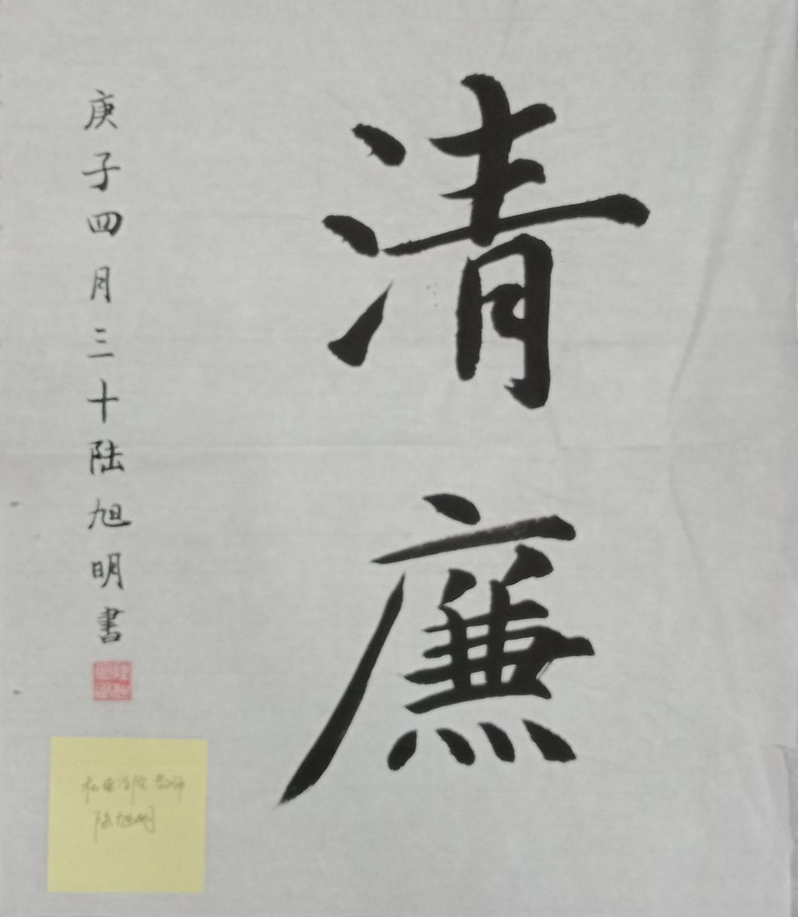 清廉
庚子四月三十陆旭明書
陆旭明